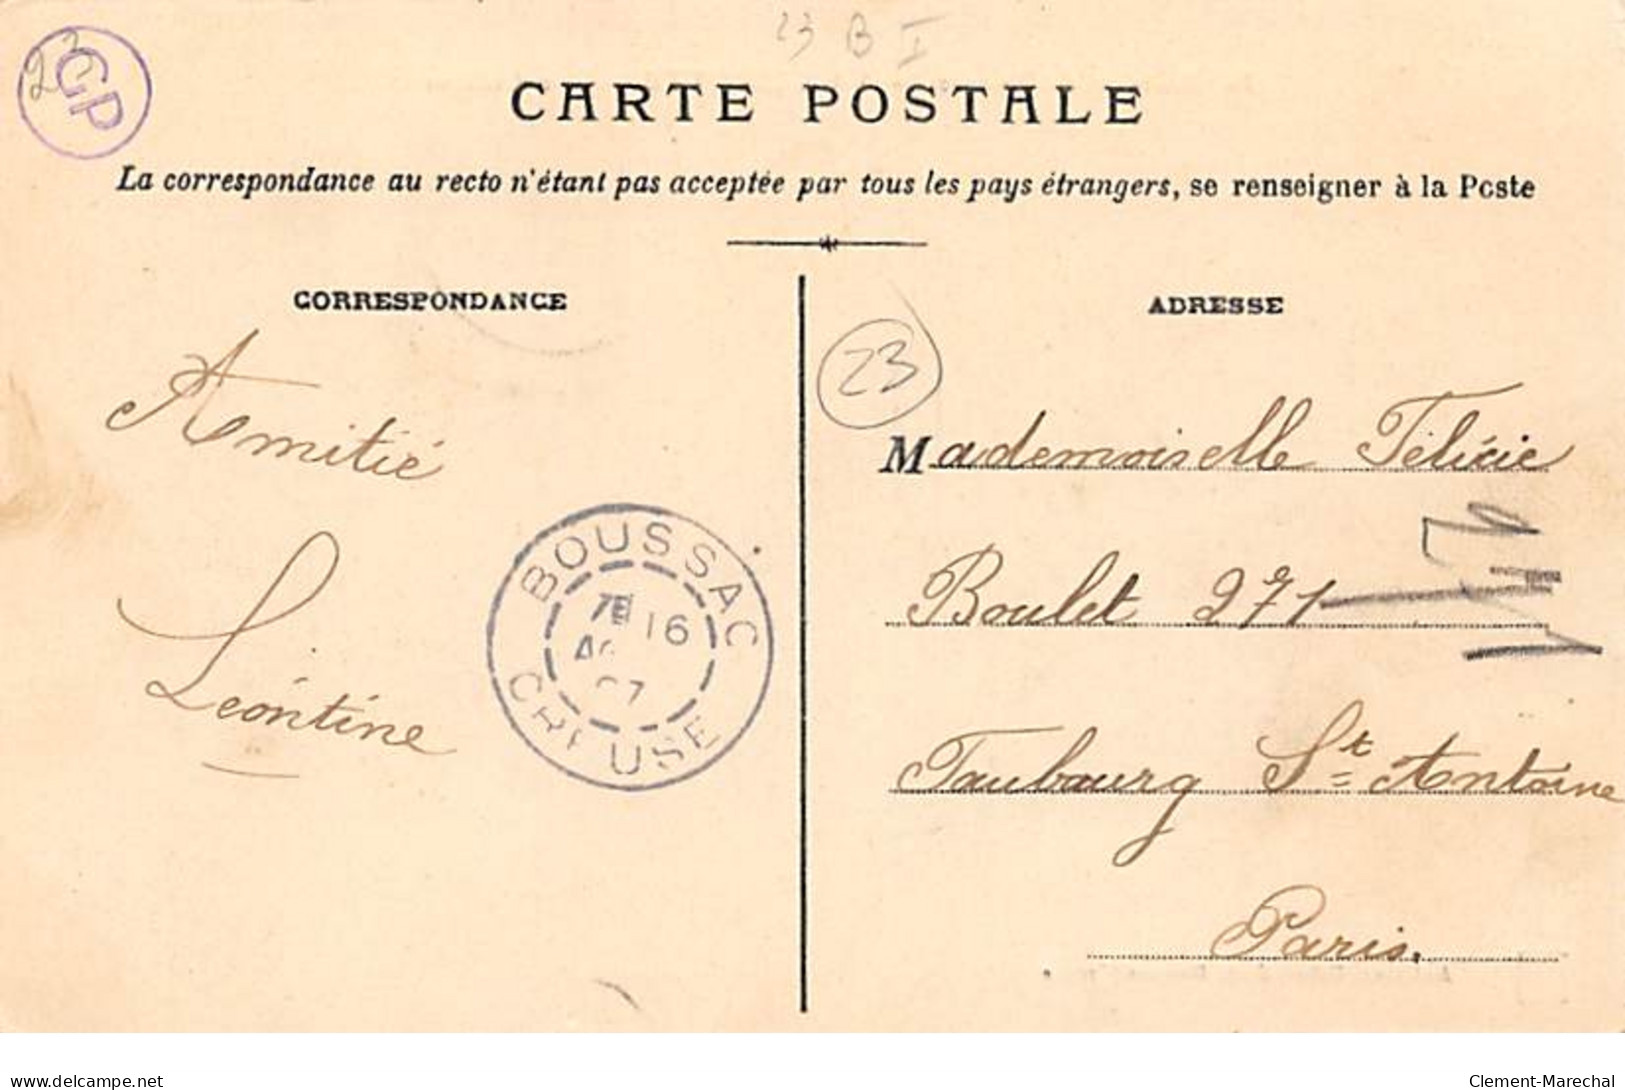 23 B I
GP
23
CARTE POSTALE
La correspondance au recto n'étant pas acceptée par tous les pays étrangers, se renseigner à la Poste
CORRESPONDANCE
Amitié
Léontine
BOUSSAC
7E 16
07
CREUSE
ADRESSE
23
Mademoiselle Félicie
Boulet 271
Faubourg St Antoine
Paris.
delcampe.net
Clement-Marechal